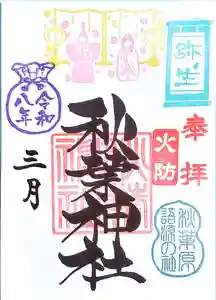 弥生
奉拝
火防
秋葉原
語源の社
秋葉神社
令和
八年
三月